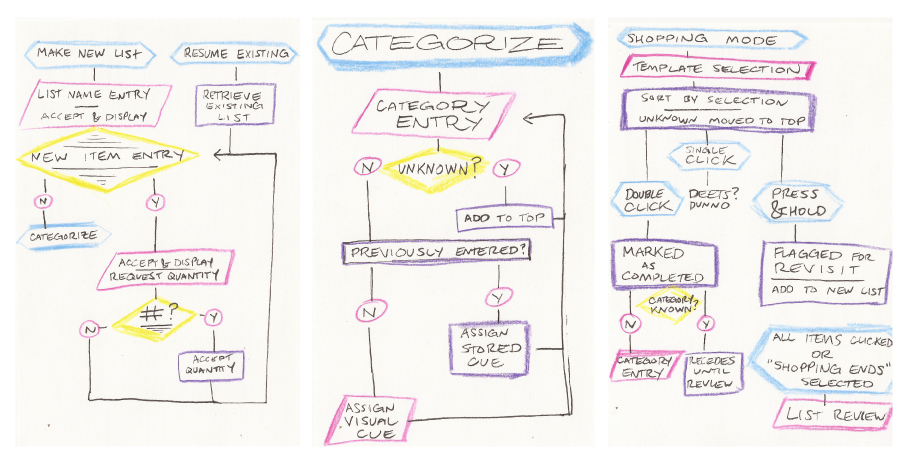 MAKE NEW LIST
RESUME EXISTING
LIST NAME ENTRY
ACCEPT & DISPLAY
RETRIEVE
EXISTING
LIST
NEW ITEM ENTRY
N
Y
CATEGORIZE
ACCEPT & DISPLAY
REQUEST QUANTITY
#?
N
Y
ACCEPT
QUANTITY
CATEGORIZE
CATEGORY
ENTRY
N
UNKNOWN?
Y
ADD TO TOP
PREVIOUSLY ENTERED?
N
Y
ASSIGN
STORED
CUE
ASSIGN
VISUAL
CUE
SHOPPING MODE
TEMPLATE SELECTION
SORT BY SELECTION
UNKNOWN MOVED TO TOP
SINGLE
CLICK
DOUBLE
CLICK
DEETS?
DUNNO
PRESS
&HOLD
MARKED
AS
COMPLETED
FLAGGED FOR
REVISIT
ADD TO NEW LIST
CATEGORY
KNOWN?
N
Y
CATEGORY
ENTRY
RECEDES
UNTIL
REVIEW
ALL ITEMS CLICKED
OR
"SHOPPING ENDS"
SELECTED
LIST REVIEW